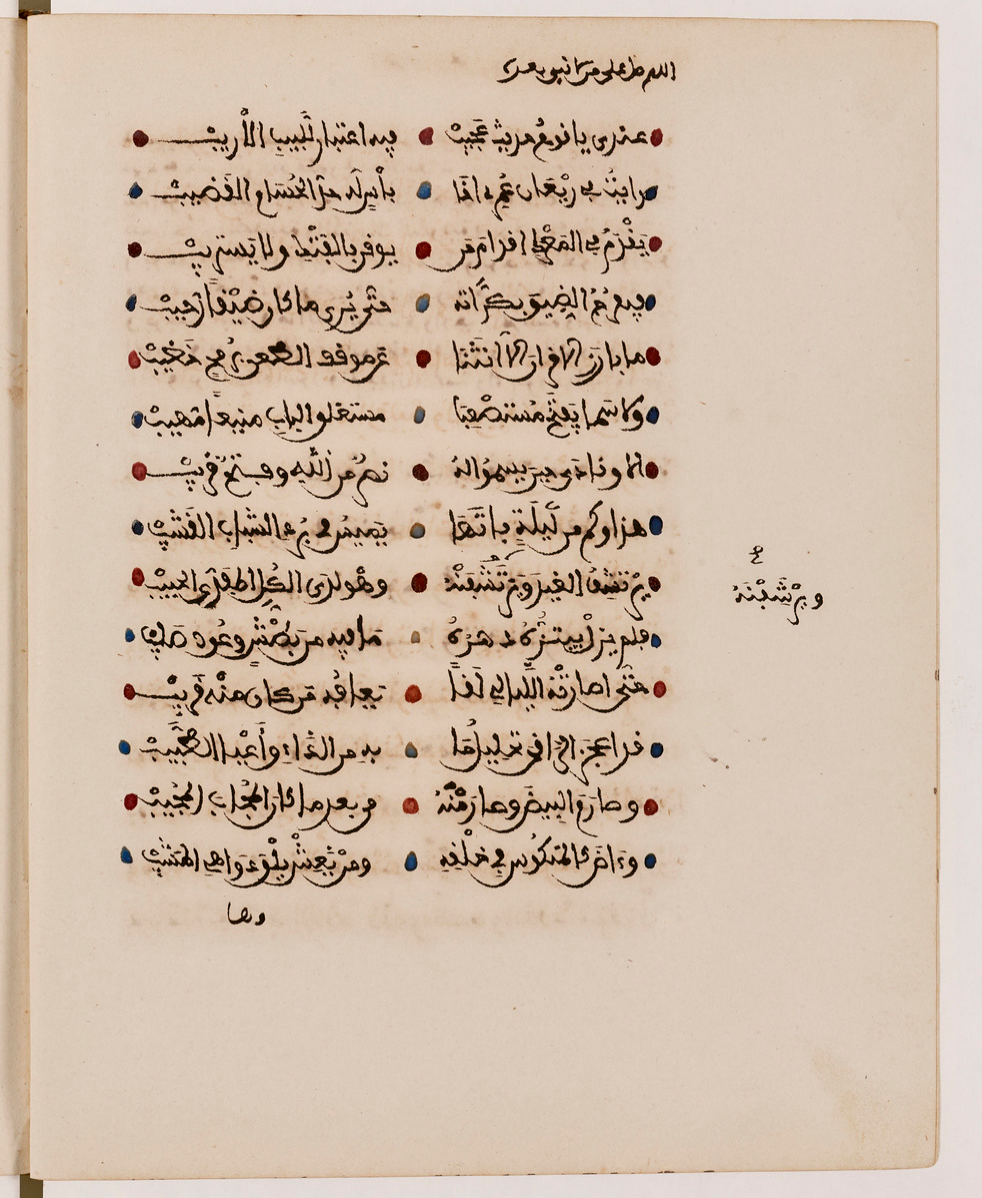 اللهم صل على من لا نبي بعده
عندي يا قوم حديث عَجيبْ فيه اعتبار للَّبيب الأريبْ
رايتُ في رَيْعان عُمري اخا بأسٍ له حدّ الحُسَام القَضيبْ
يَقْدَمُ في المَعْرك اقدام من يوقن بالفَتْك ولا يَستريبْ
فيفرجُ الضيق بكرَّاته حتى يُرى ما كان ضَيْقاً رَحيبْ
ما بارَز الاقران الاَّ انثَنَا عن موقف الطعن برُمح خَضيبْ
ولا سَما يَفتحُ مُستصْعبا مستغلق الباب منيعاً مَهيبْ
الا ونادى حين يسمُوا لهُ نصرٌ من اللَّه وفتحٌ قريبْ
هذا وكم من لَيلَةٍ باتَهَا يَميسُ في بُرد الشباب القَشيبْ
يرْتشفُ الغيدَ ويرْتَشُفنَهُ وهْو لدى الكُل المفدَّى الحبيبْ
فلم يزلْ يبتزُّهُ دهرُهُ مَا فيه من بَطْشٍ وعُودٍ صَليبْ
حتَّى اصارتْهُ اللَّيالي لَقاً يعافُه مَن كان منْه قَريبْ
قد اعجز الراقي تحليلُ مَا به من الدَّاء وأَعْيا الطَّبيبْ
وصارم البيضَ وصارَمْنَهُ من بعد ما كان المُجاب المُجيبْ
وءاض كالمنكُوس في خلْقه ومنْ يَعشْ يلْق دَواهي المَشيبْ
وها
ع
ويرْشَفْنَهُ